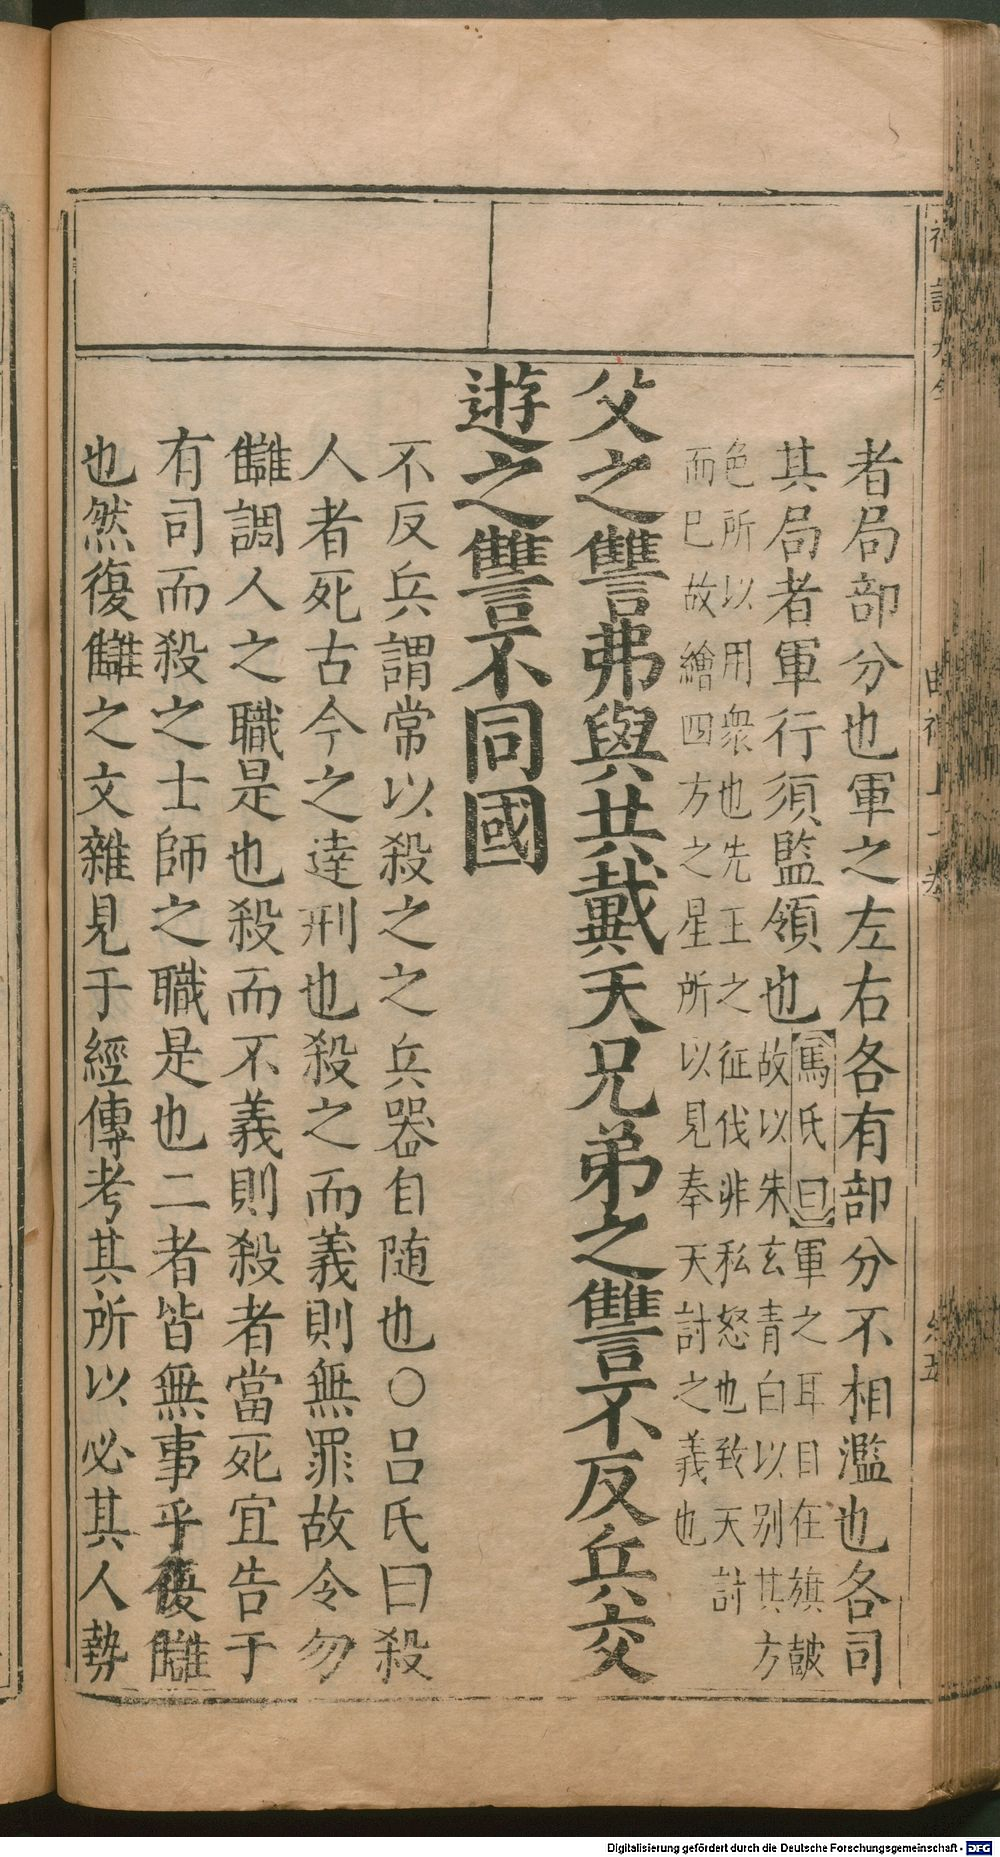 者局部分也軍之左右各有部分不相濫也各司
其局者軍行須監領也
【馬氏曰】軍之耳目在旗皷
故以朱玄青白以别其方
色所以用衆也先王之征伐非私怒也致天討
而巳故繪四方之星所以見奉天討之義也
父之讐弗與共戴天兄弟之讐不反兵交
遊之讐不同國
不反兵謂常以殺之之兵器自随也○呂氏曰殺
人者死古今之達刑也殺之而義則無罪故令勿
讎調人之職是也殺而不義則殺者當死宜告于
有司而殺之士師之職是也二者皆無事乎復讎
也然復讎之文雜見于經傳考其所以必其人勢
Digitalisierung gefördert durch die Deutsche Forschungsgemeinschaft - DFG